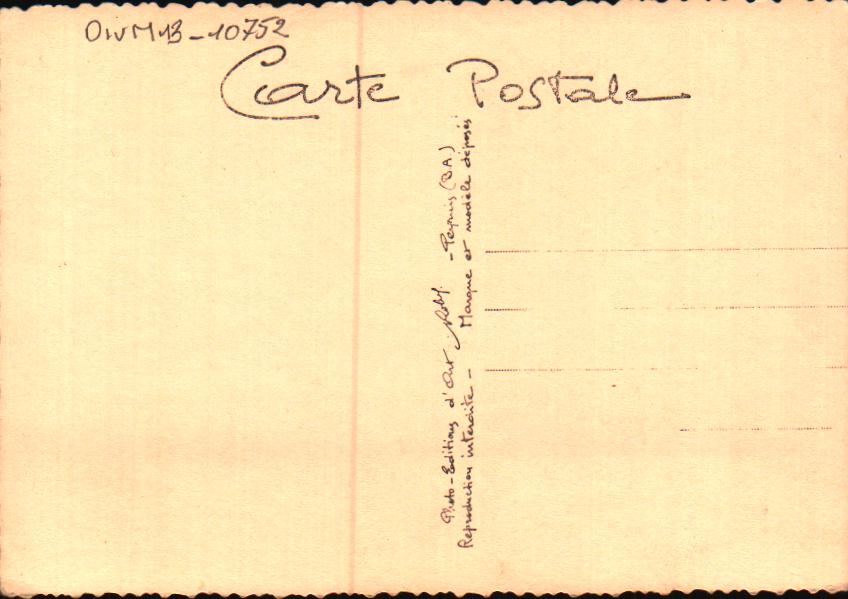 DIVM13-10752
Carte Postale
Photo-Editions d'Art Roby. - Peypin (B.A.)
Reproduction interdite - Marque et modèle déposés